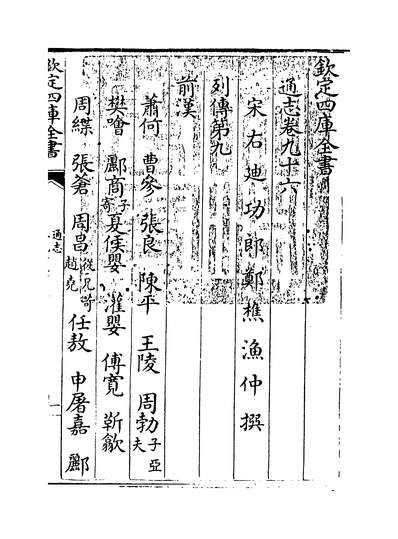 欽定四庫全書
通志卷九十六
宋右迪功郎鄭樵漁仲撰
列傳第九
前漢
蕭何 曹參 張良 陳平 王陵 周勃子亞夫
樊噲 酈商子寄 夏侯嬰 灌嬰 傅寛 靳歙
周緤 張蒼 周昌從兄苛 趙堯 任敖 申屠嘉 酈
欽定四庫全書
通志
一